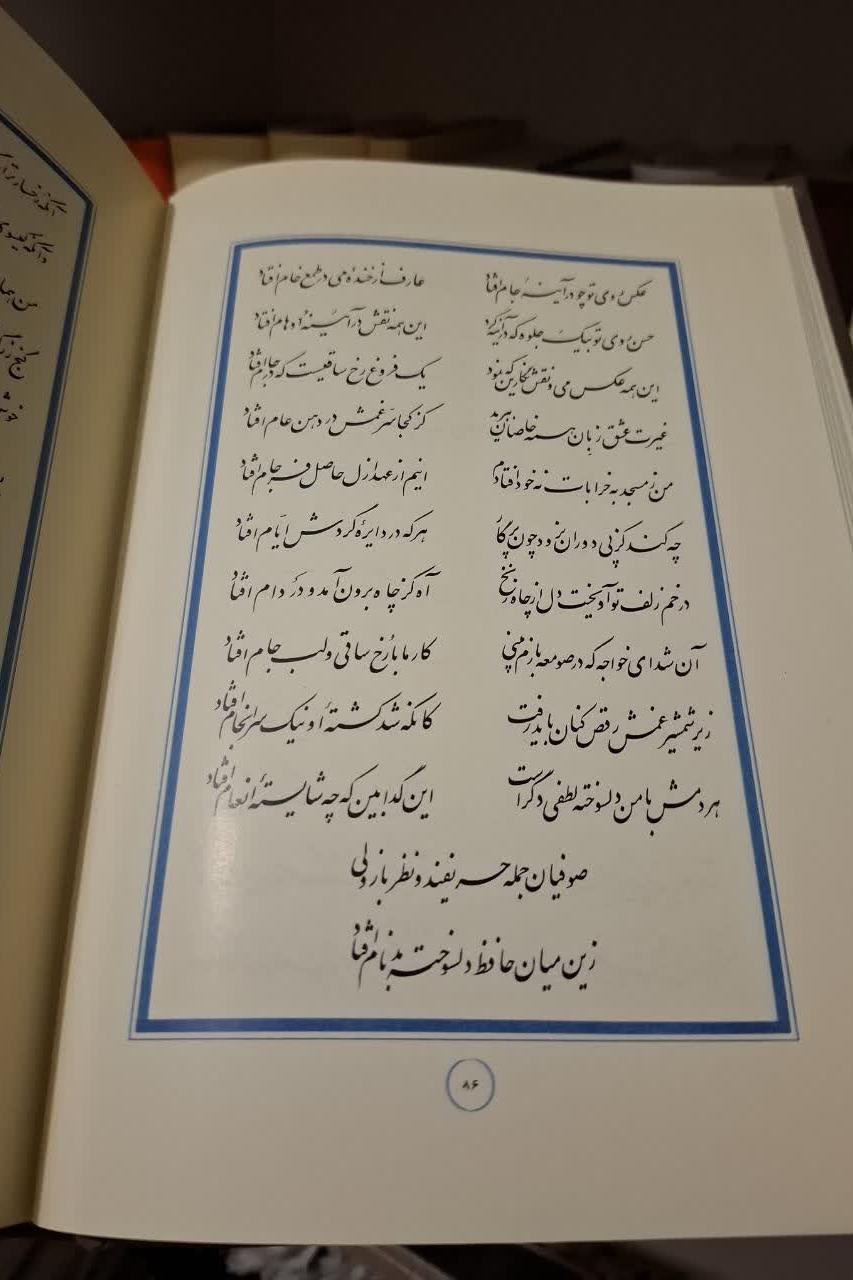 عکس روی تو چو در آینهٔ جام افتاد    عارف از خندهٔ می در طمع خام افتاد
حسن روی تو بیک جلوه که در آینه کرد    این همه نقش در آیینهٔ اوهام افتاد
این همه عکس می و نقش نگارین که نمود    یک فروغ رخ ساقیست که در جام افتاد
غیرت عشق زبان همه خاصان ببرید    کز کجا سر غمش در دهن عام افتاد
من ز مسجد به خرابات نه خود افتادم    اینم از عهد ازل حاصل فرجام افتاد
چه کند کز پی دوران نرود چون پرگار    هر که در دایرهٔ گردش ایّام افتاد
در خم زلف تو آویخت دل از چاه زنخ    آه کز چاه برون آمد و در دام افتاد
آن شد ای خواجه که در صومعه بازم بینی    کار ما با رُخ ساقی و لب جام افتاد
زیر شمشیر غمش رقص کنان باید رفت    کانکه شد کشتهٔ او نیک سرانجام افتاد
هر دمش با من دلسوخته لطفی دگر است    این گدا بین که چه شایستهٔ انعام افتاد
صوفیان جمله حریفند و نظر باز ولی
زین میان حافظ دلسوخته بدنام افتاد
۸۶